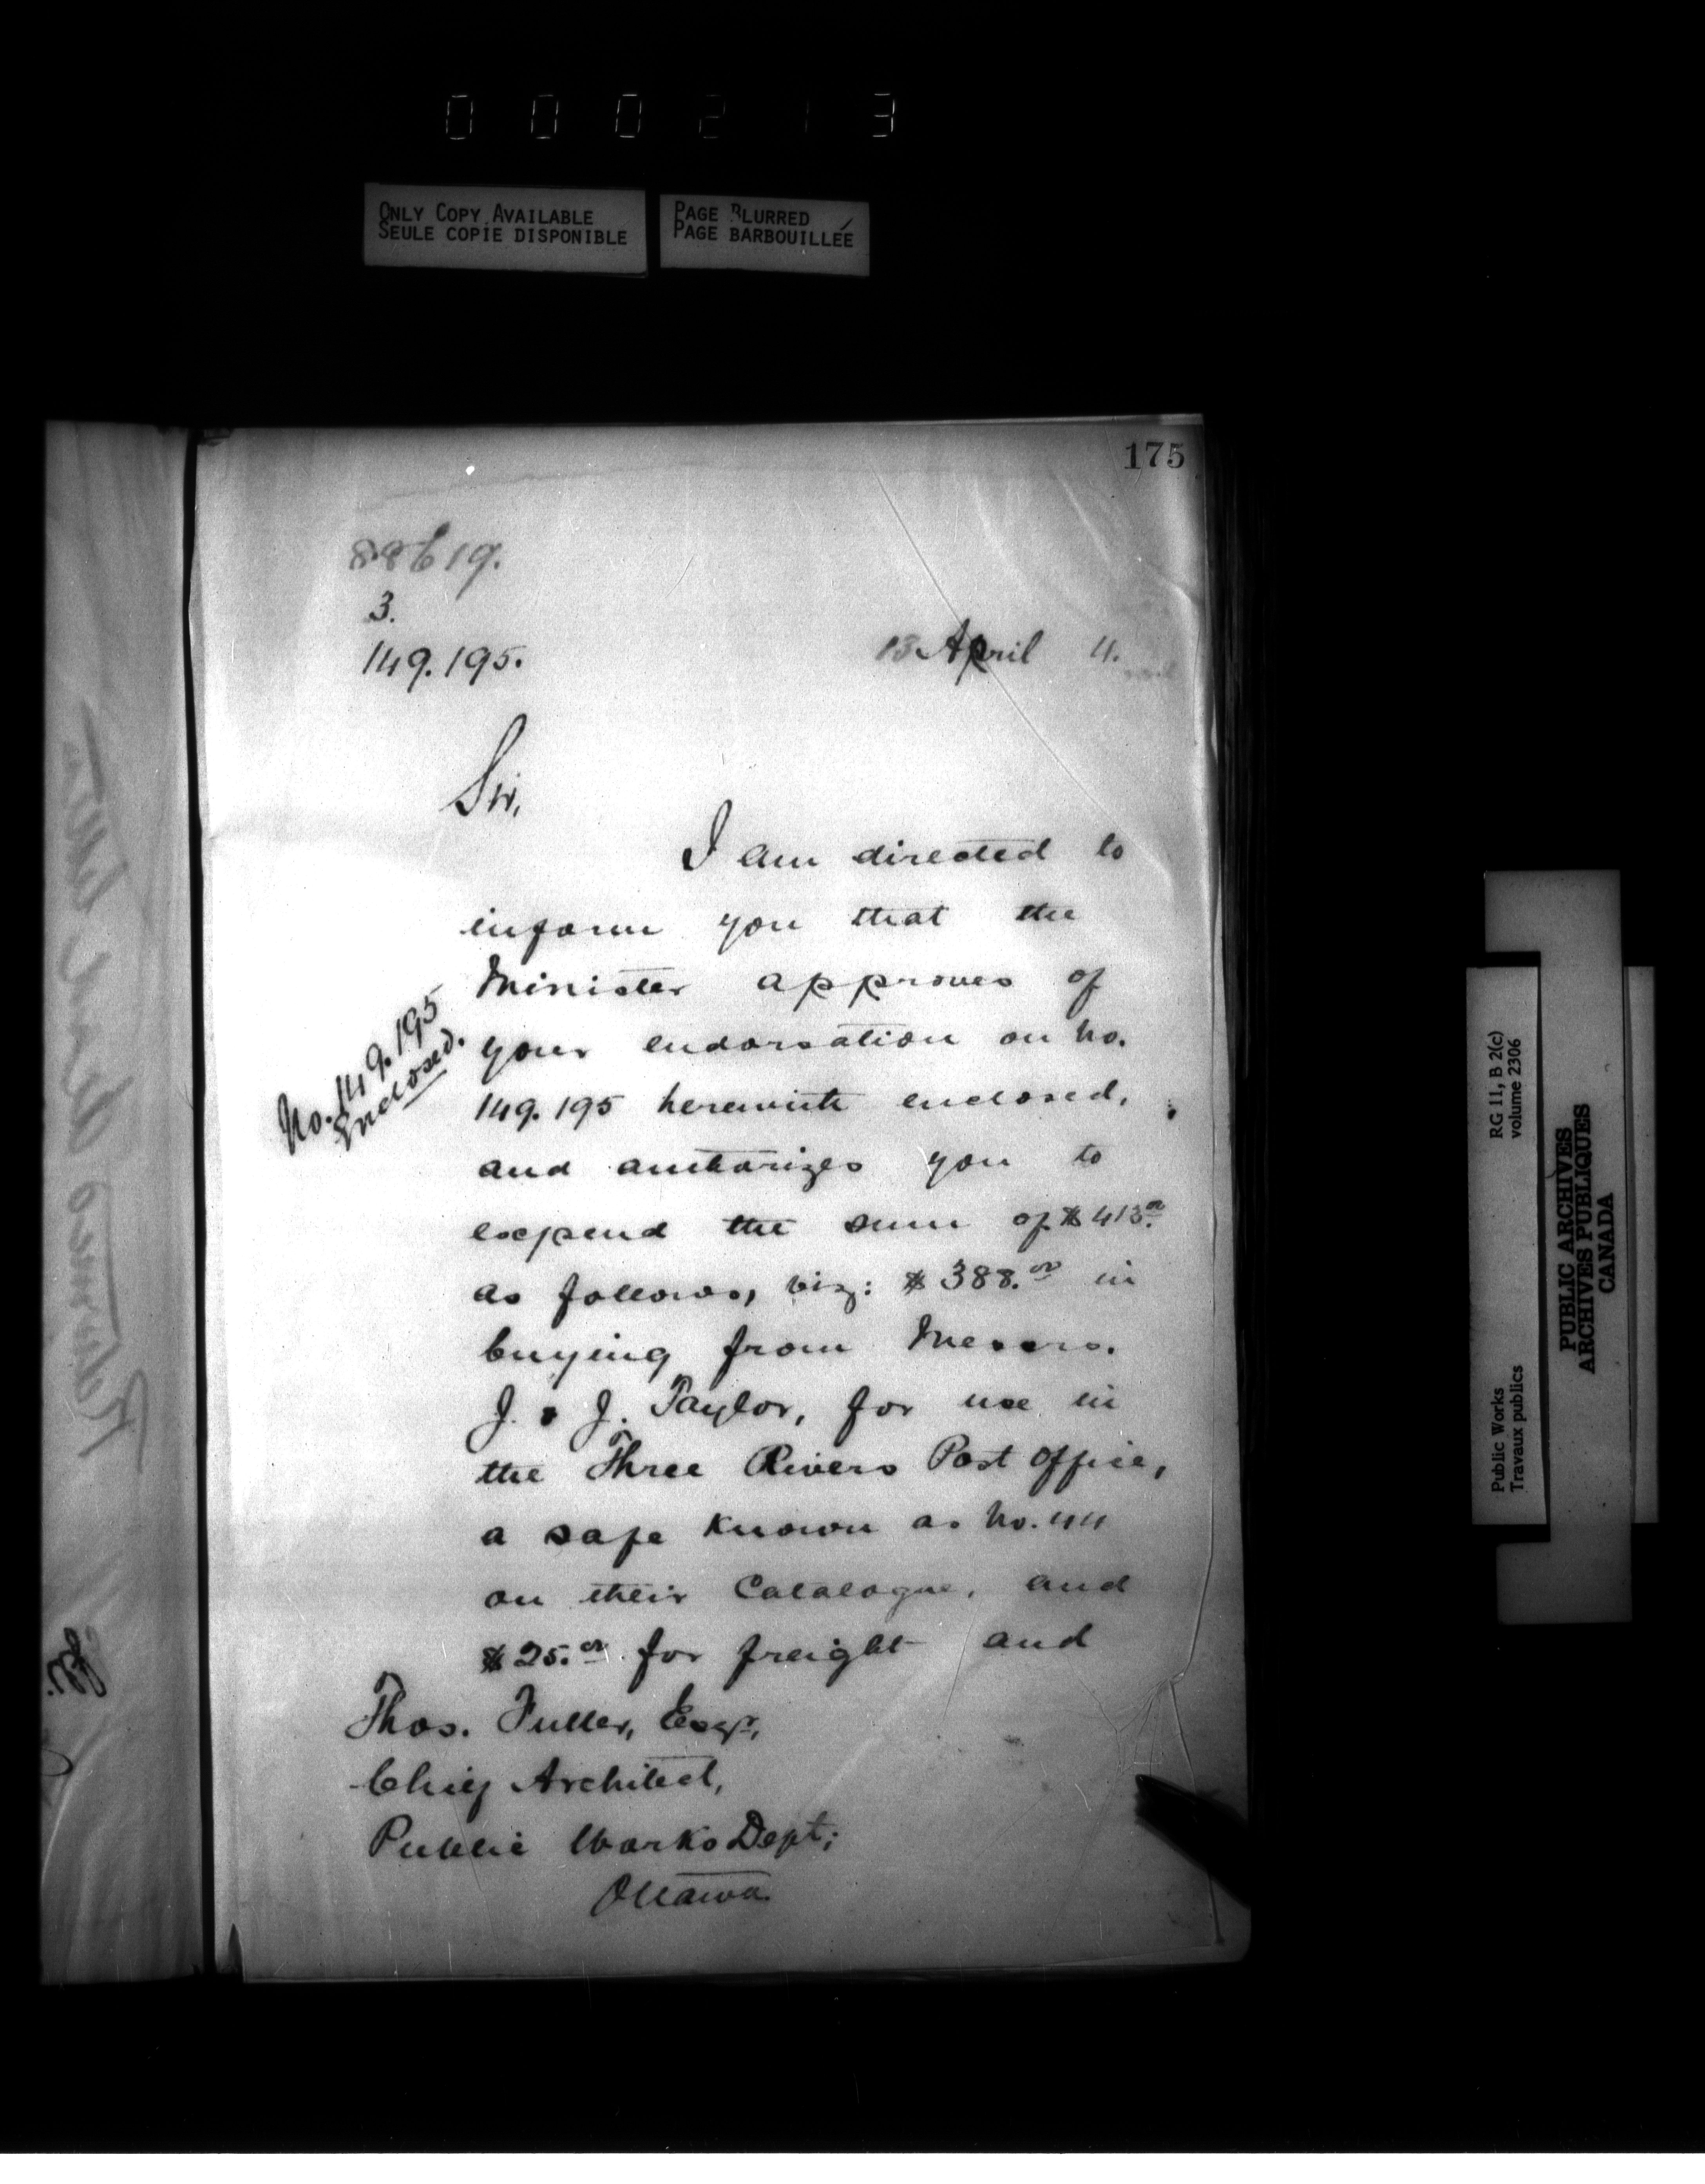 000213
ONLY COPY AVAILABLE
SEULE COPIE DISPONIBLE
PAGE BLURRED
PAGE BARBOUILLÉE
175
88619.
3.
149.195.
13 April 4.
Sir,
I am directed to
inform you that the
Minister approves of
your endorsation on No.
149.195 herewith enclosed,
and authorizes you to
expend the sum of $413.00
as follows, viz: $388.00 in
buying from Messrs.
J. & J. Taylor, for use in
the Three Rivers Post Office,
a safe known as No. 44
on their Catalogue, and
$25.00 for freight and
No. 149.195
Enclosed.
Thos. Fuller, Esqr,
Chief Architect,
Public Works Dept;
Ottawa
RG 11, B 2(c)
volume 2306
Public Works
Travaux publics
PUBLIC ARCHIVES
ARCHIVES PUBLIQUES
CANADA